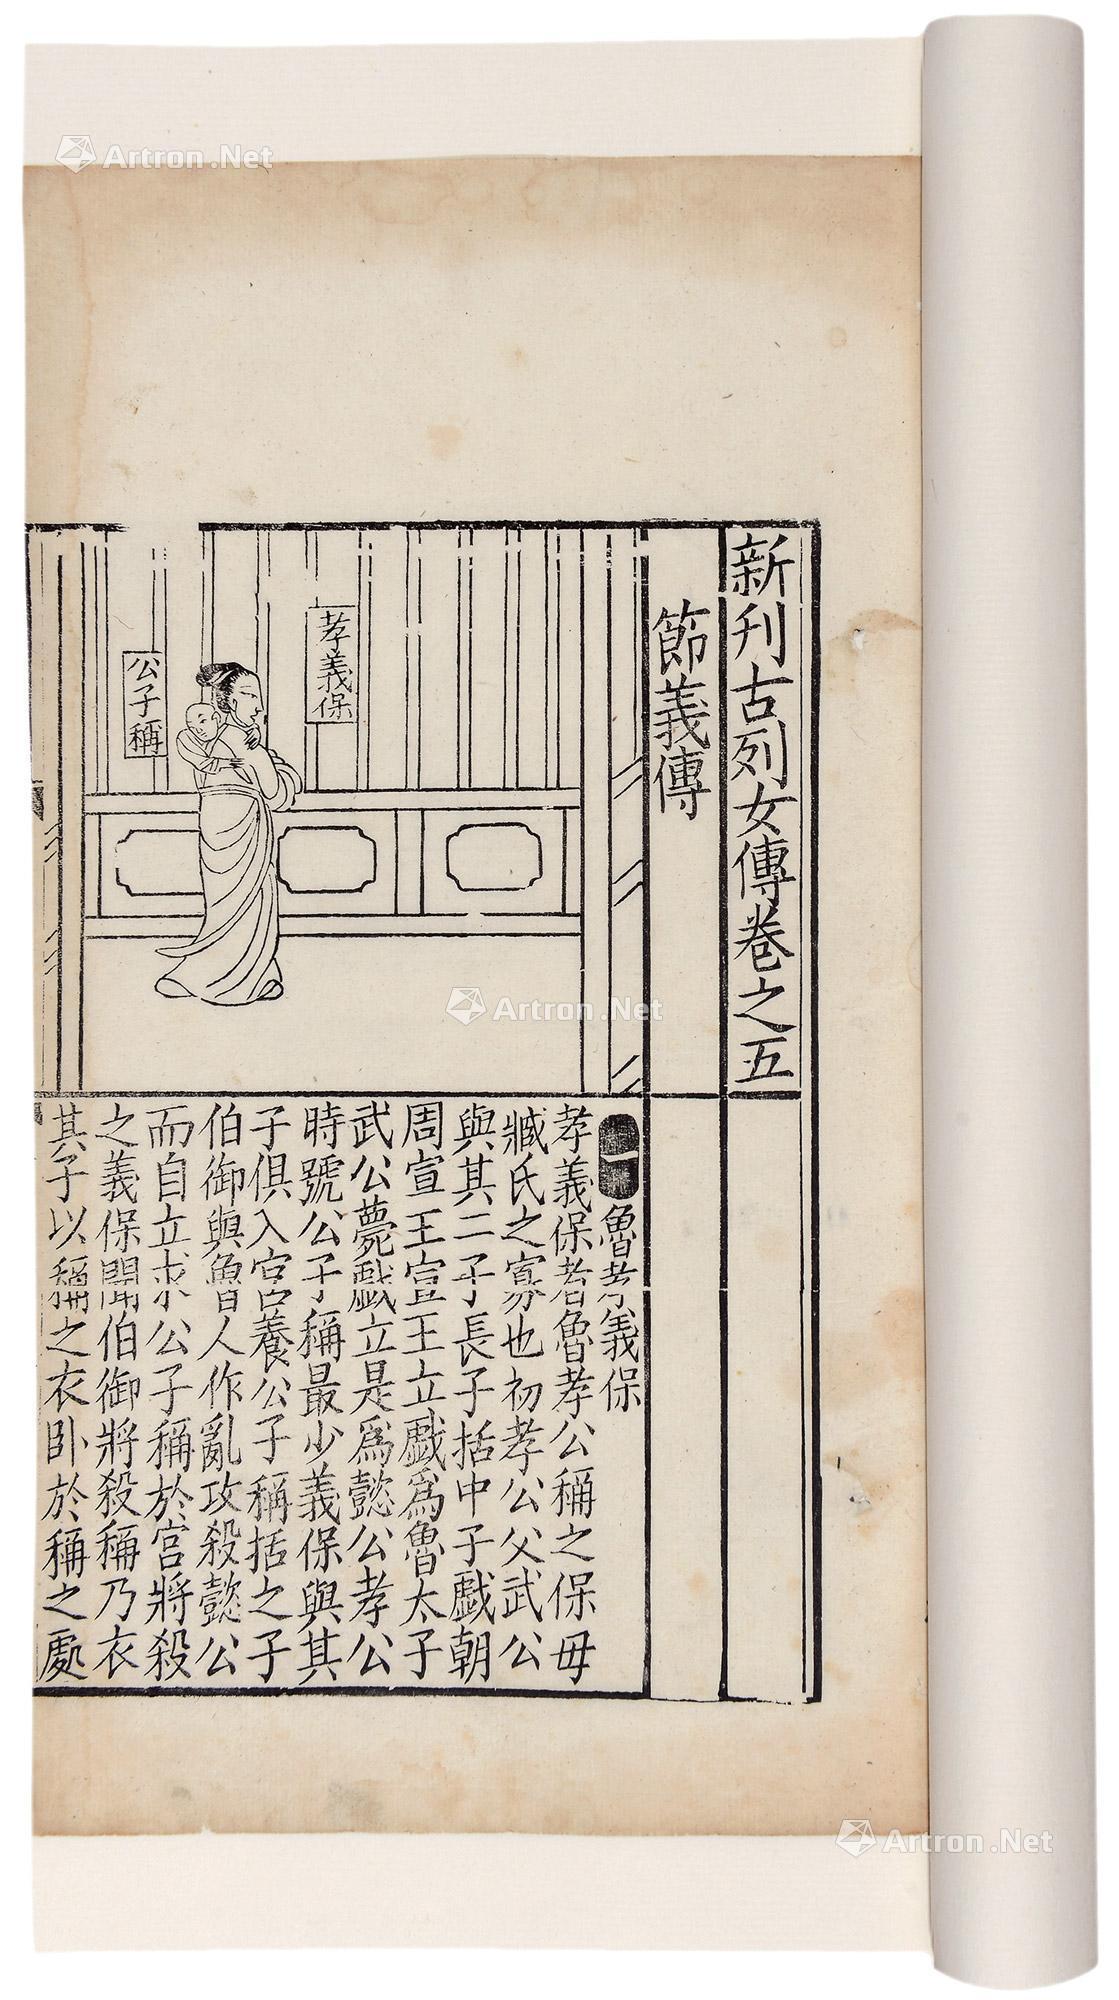 新刊古列女傳卷之五
節義傳
孝義保
公子稱
一 魯孝義保
孝義保者魯孝公稱之保毋
臧氏之寡也初孝公父武公
與其二子長子括中子戲朝
周宣王宣王立戲爲魯太子
武公薨戲立是爲懿公孝公
時號公子稱最少義保與其
子俱入宮養公子稱括之子
伯御與魯人作亂攻殺懿公
而自立求公子稱於宮將殺
之義保聞伯御將殺稱乃衣
其子以稱之衣卧於稱之處
Artron.Net
Artron.Net
Artron.Net